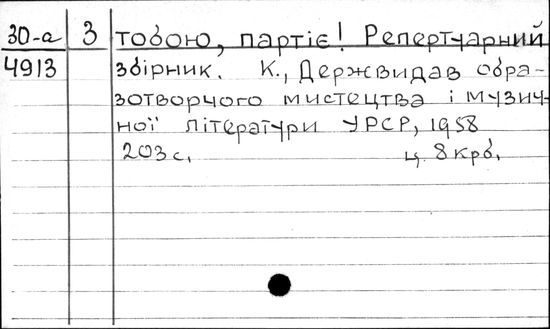 30-а 3 тобою, партіє! Репертуарний
4913 збірник. К., Держвидав обра-
зотворчого мистецтва і музич-
ної літератури УРСР, 1958
203 с. ц. 8 крб.